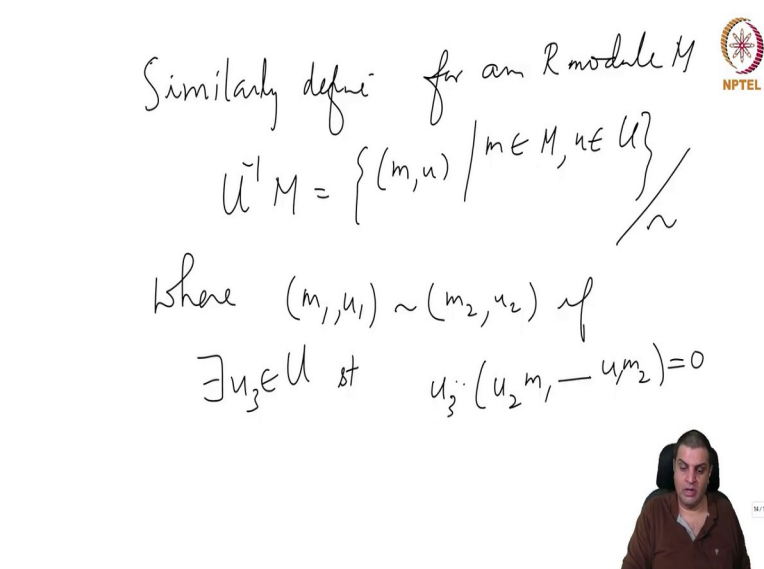 Similarly define for an R module M
U⁻¹ M = {(m, u) | m ∈ M, u ∈ U} / ~
where (m₁, u₁) ~ (m₂, u₂) if
∃ u₃ ∈ U st u₃·(u₂m₁ — u₁m₂) = 0
NPTEL
14/1